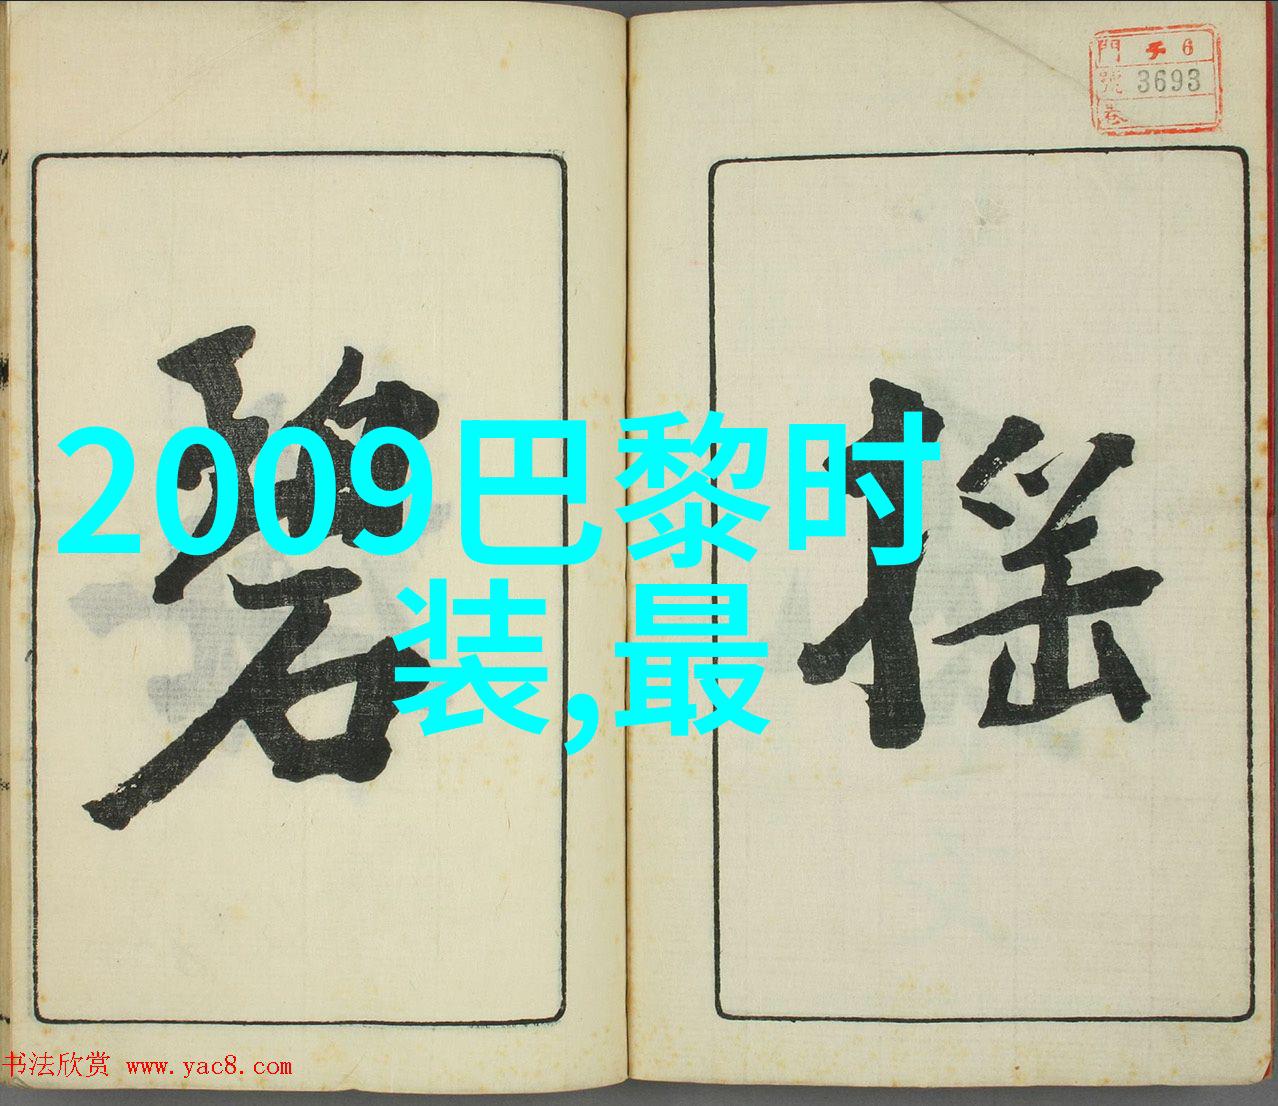 門 6
號 3693
卷
搖
碧
2009巴黎时
装,最
书法欣赏 www.yac8.com